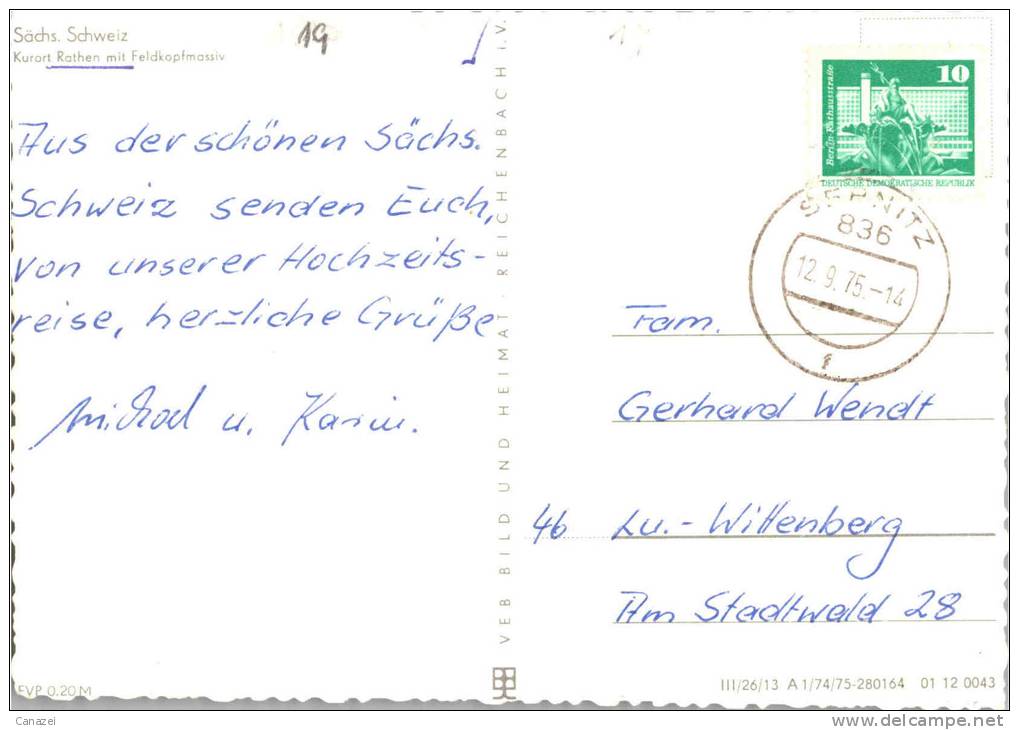 Sächs. Schweiz
Kurort Rathen mit Feldkopfmassiv
19
Aus der schönen Sächs.
Schweiz senden Euch,
von unserer Hochzeits-
reise, herzliche Grüße
Michael u. Karin.
EVP 0.20 M
VEB BILD UND HEIMAT REICHENBACH i. V.
10
Berlin-Rathausstraße
DEUTSCHE DEMOKRATISCHE REPUBLIK
SEBNITZ
836
12.9.75.-14
f
Fam.
Gerhard Wendt
46 Lu.-Wittenberg
Am Stadtwald 28
III/26/13 A 1/74/75-280164 01 12 0043
Canazei
www.delcampe.net